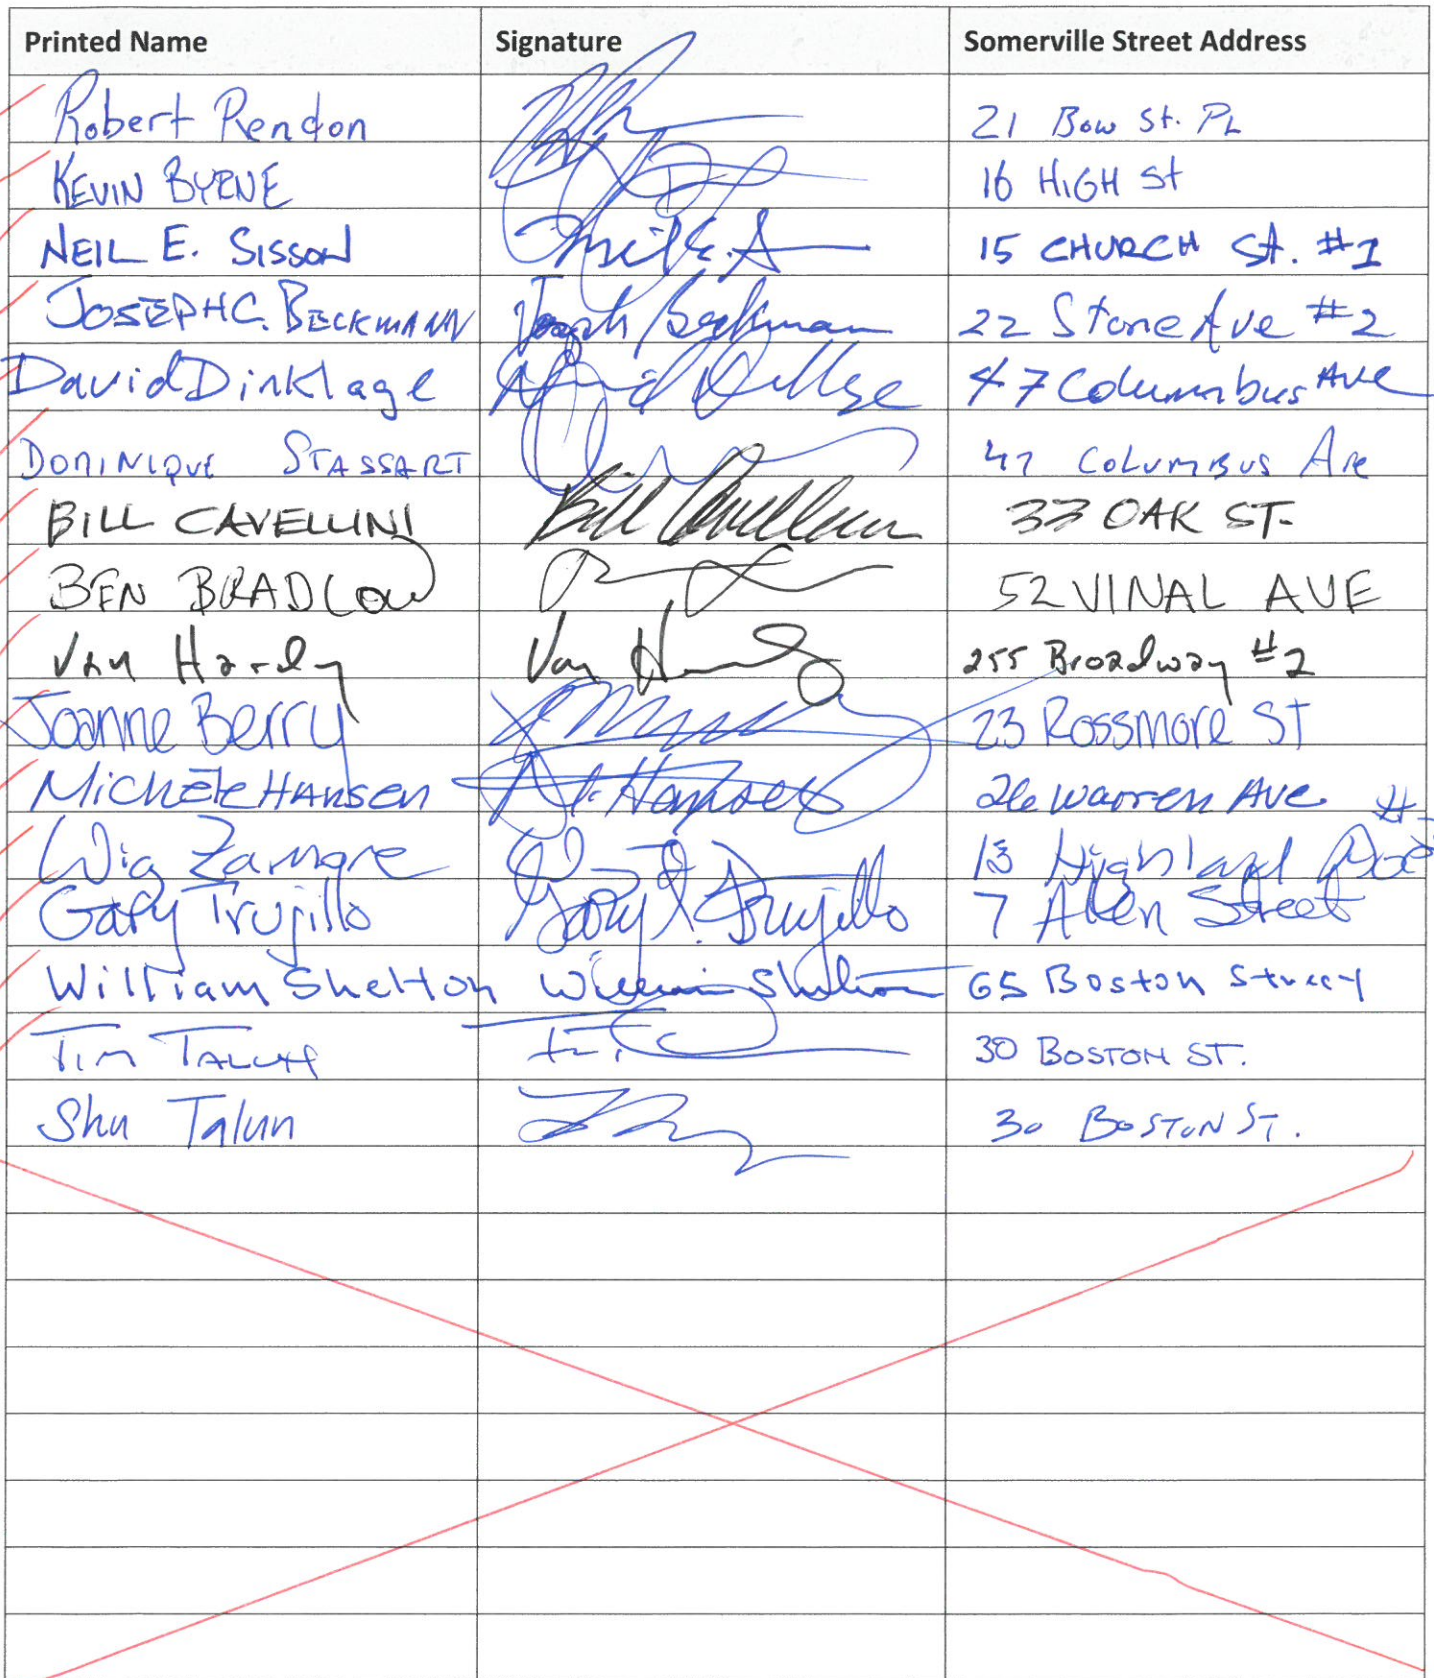 Printed Name Signature Somerville Street Address
Robert Rendon 21 Bow St. PL
KEVIN BYRNE 16 HIGH St
NEIL E. SISSON Neil E. S 15 CHURCH St. #1
JOSEPH C. BECKMANN Joseph Beckmann 22 Stone Ave #2
David Dinklage David Dinklage 47 Columbus Ave
DOMINIQUE STASSART 47 COLUMBUS Ave
BILL CAVELLINI Bill Cavellini 33 OAK ST.
BEN BRADLOW 52 VINAL AVE
Van Hardy Van H 255 Broadway #2
Joanne Berry 23 Rossmore ST
Michèle Hansen M. Hansen 26 Warren Ave
Wig Zamore 13 Highland #
Gary Trujillo Gary Trujillo 7 Allen Street
William Shelton William Shelton 65 Boston Street
TIM TALUN 30 BOSTON ST.
Shu Talun 30 BOSTON ST.